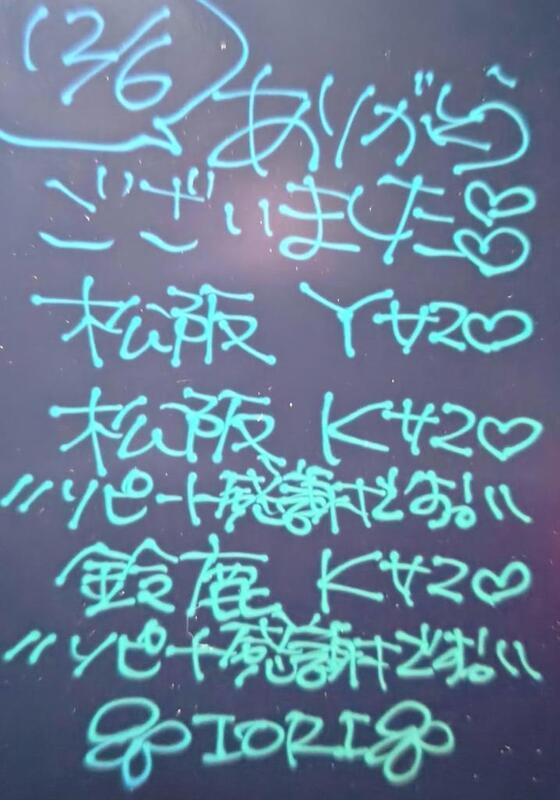 12/6
ありがとう
ございました♡♡
松阪 Yサン♡
松阪 Kサン♡
〃リピート感謝です!〃
鈴鹿 Kサン♡
〃リピート感謝です!〃
IORI